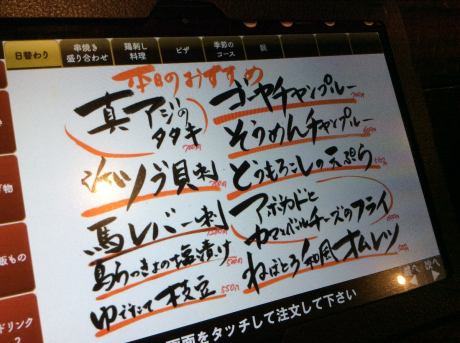 日替わり
串焼き
盛り合わせ
鶏刺し
料理
ピザ
季節の
コース
本日のおすすめ
真アジの
タタキ
ツブ貝刺
馬レバー刺
島らっきょの塩漬け
ゆでたて枝豆
550円
ゴーヤチャンプルー
そうめんチャンプルー
とうもろこしの天ぷら
アボカドと
カマンベールチーズのフライ
ねばとろ和風オムレツ
物
飯もの
ドリンク
2
次へ
画面をタッチして注文して下さい